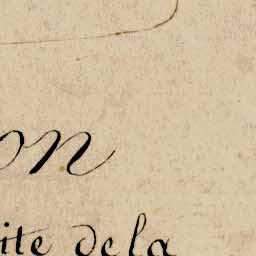 on
ite de la